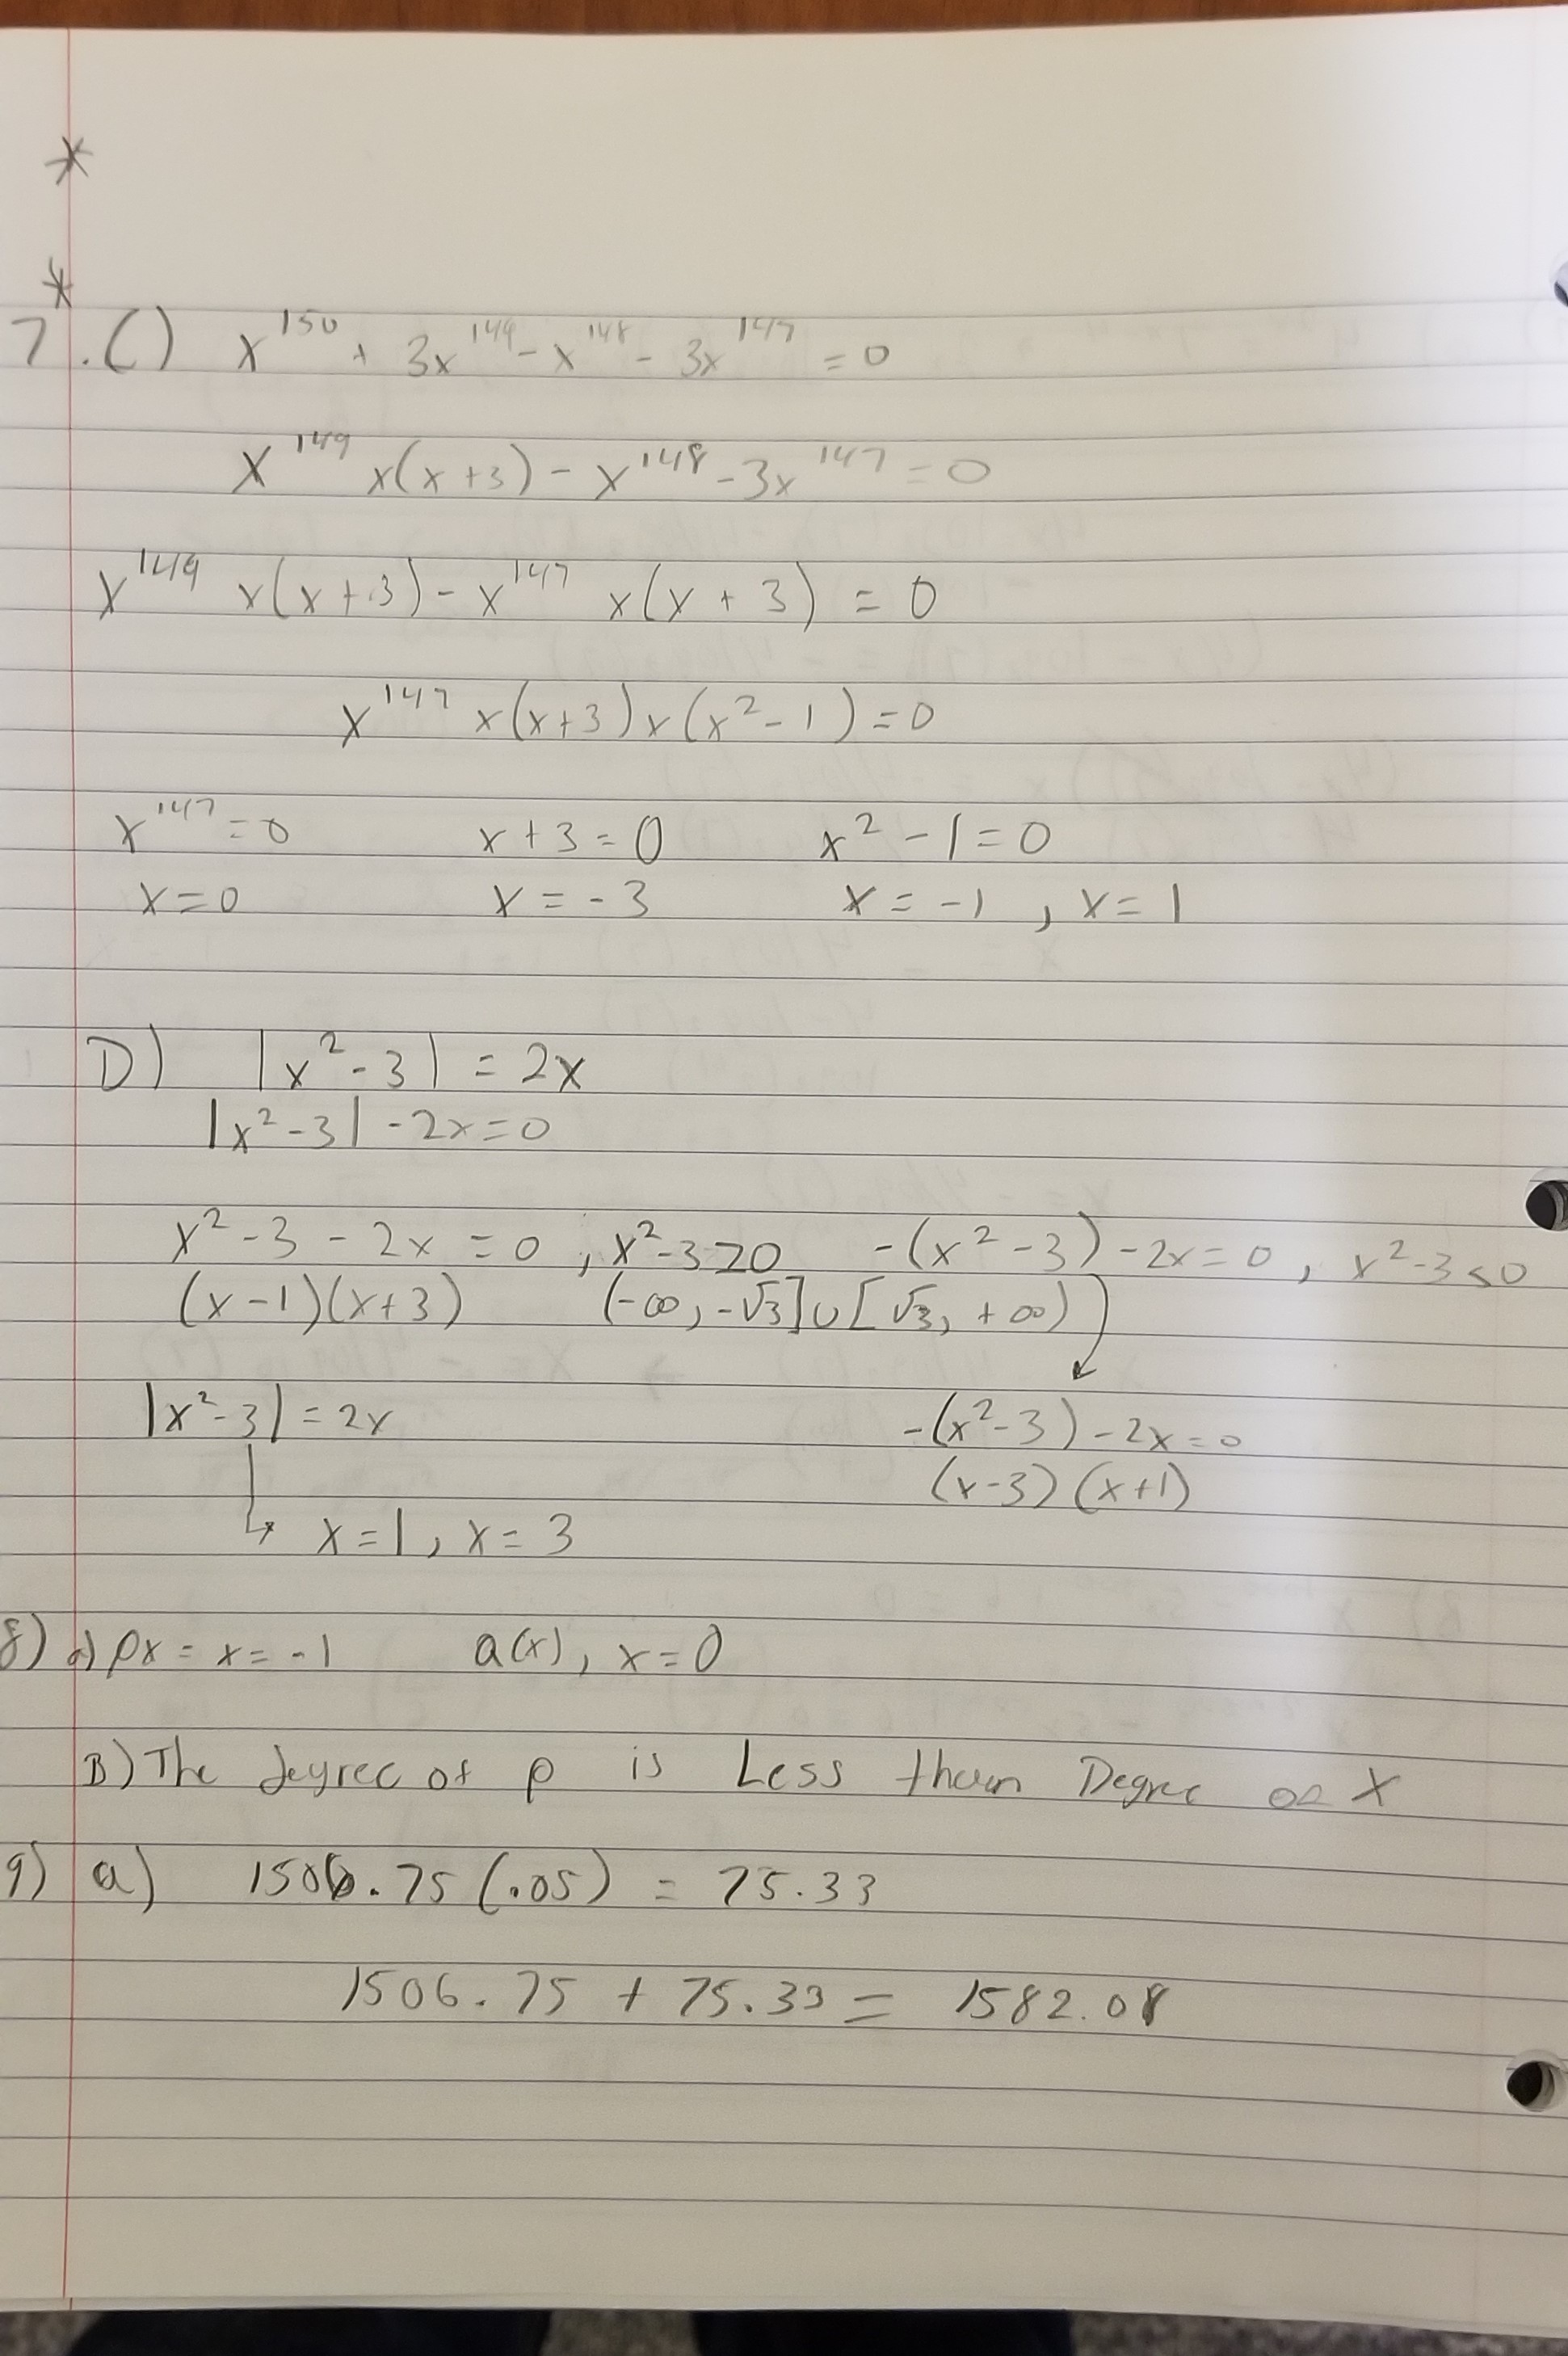 *
*
7.C) x¹⁵⁰ + 3x¹⁴⁹ - x¹⁴⁸ - 3x¹⁴⁷ = 0
x¹⁴⁹ x(x+3) - x¹⁴⁸ - 3x¹⁴⁷ = 0
x¹⁴⁹ x(x+3) - x¹⁴⁷ x(x+3) = 0
x¹⁴⁷ x(x+3) x(x²-1) = 0
x¹⁴⁷ = 0 x+3=0 x²-1=0
x=0 x=-3 x=-1, x=1
D) |x²-3| = 2x
|x²-3| -2x=0
x²-3-2x=0, x²-3≥0 -(x²-3)-2x=0, x²-3<0
(x-1)(x+3) (-∞,-√3]∪[√3,+∞)
|x²-3|=2x -(x²-3)-2x=0
(x-3)(x+1)
↳ x=1, x=3
8) a) px = x = -1 a(x), x=0
B) The degree of p is Less than Degree of X
9) a) 1506.75(.05) = 75.33
1506.75 + 75.33 = 1582.08